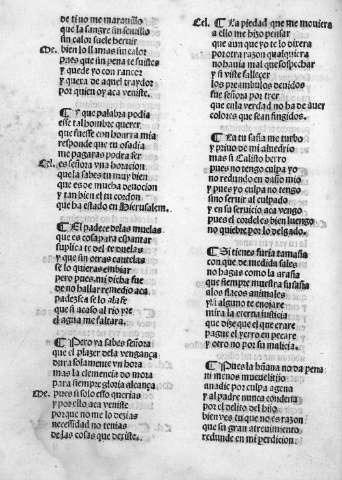 de ti vo me marauillo
que la sangre sin senzillo
sin calor suele heruir
Me. bien lo llamas sin calor
pues que sin pena te sustẽs
y quede yo con rancor
y quexa de aquel traydor
por quien oy aca veniste.
¶ Y que palabra podia
esse tal hombre querer
que fuesse con honrra mia
responde que tu osadia
me pagaras podra ser
Cel. es señora vna horacion
que la sabes tu muy bien
que es de mucha deuocion
y tan bien el tu cordon
que ha estado en Hierusalem.
¶ El padece de las muelas
que es cosa para espantar
suplica te del te duelas
y que sin otras cautelas
se lo quieras embiar
pero pues mi dicha fue
de no hallar remedio aca
padezca se lo a la fe
que si acaso al rio yre
el agua me faltara.
¶ Pero ya sabes señora
que el plazer de la vengança
dura solamente vn hora
mas la clemencia do mora
para siempre gloria alcança
Me. pues si solo esso querias
y por ello aca veniste
porque no me lo dezias
necessidad no tenias
de las cosas que dexiste.
Cel. ¶ La piedad que me mouiera
a ello me hizo pensar
que aun que yo te lo dixera
por otra razon qualquiera
no hauia mal que sospechar
y si viste fallecer
los preambulos deuidos
fue señora por traer
que en la verdad no ha de auer
colores que sean fingidos.
¶ La tu saña me turbo
y priuo de mi aluedrio
mas si Calisto herro
pues no tengo culpa yo
no redundo en daño mio
y pues yo culpa no tengo
sino seruir al culpado
y en su seruicio aca vengo
pues el cordel es bien luengo
no quiebre por lo delgado.
¶ Si tienes furia tamaña
con que de medida sales
no hagas como la araña
que siempre muestra su saña
a los flacos animales
y si alguno te enojare
mira la eterna justicia
que dize que el que errare
pague el yerro en pecare
y otro no por su malicia.
¶ Pues la hũana no da pena
ni menos mueue litijo
a nadie por culpa agena
y al padre nunca condena
por el delito del hijo
bien ves tu que no es razon
que su gran atreuimiento
redunde en mi perdicion.